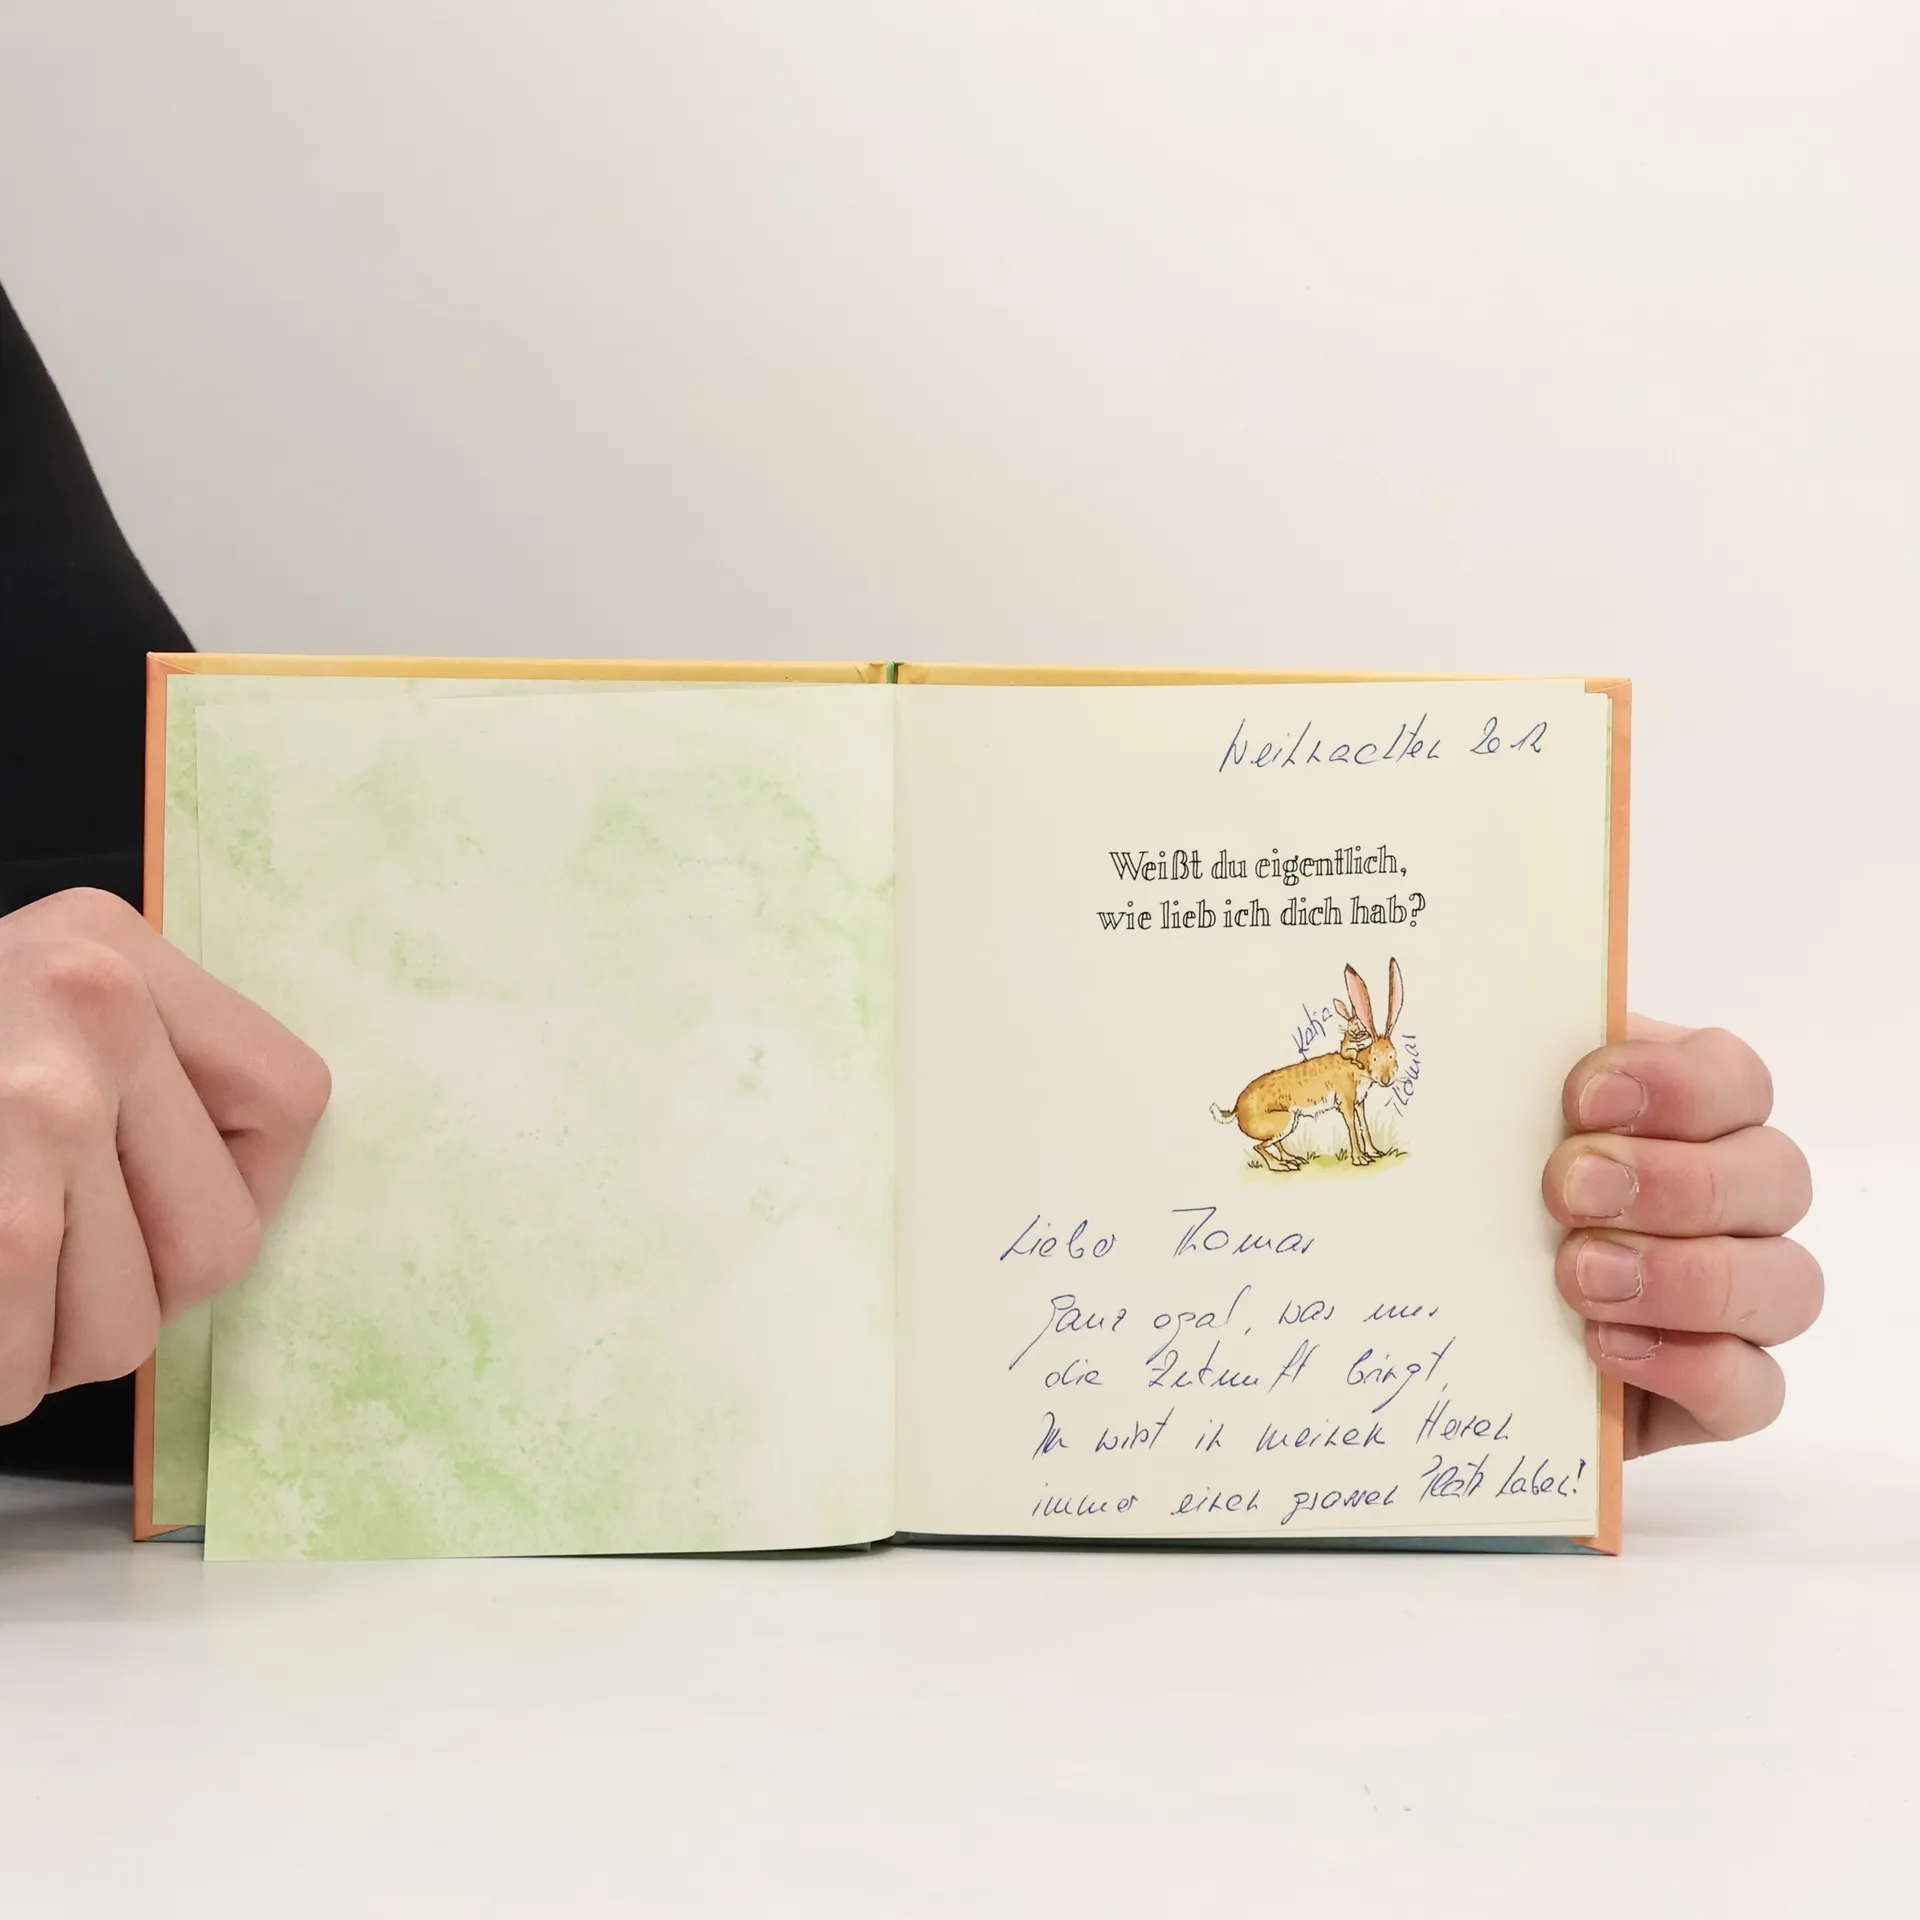 Weihnachten 2012
Weißt du eigentlich,
wie lieb ich dich hab?
Katja
Thomas
Lieber Thomas
Ganz egal, was uns
die Zukunft bringt,
Du wirst in meinem Herzen
immer einen grossen Platz haben!